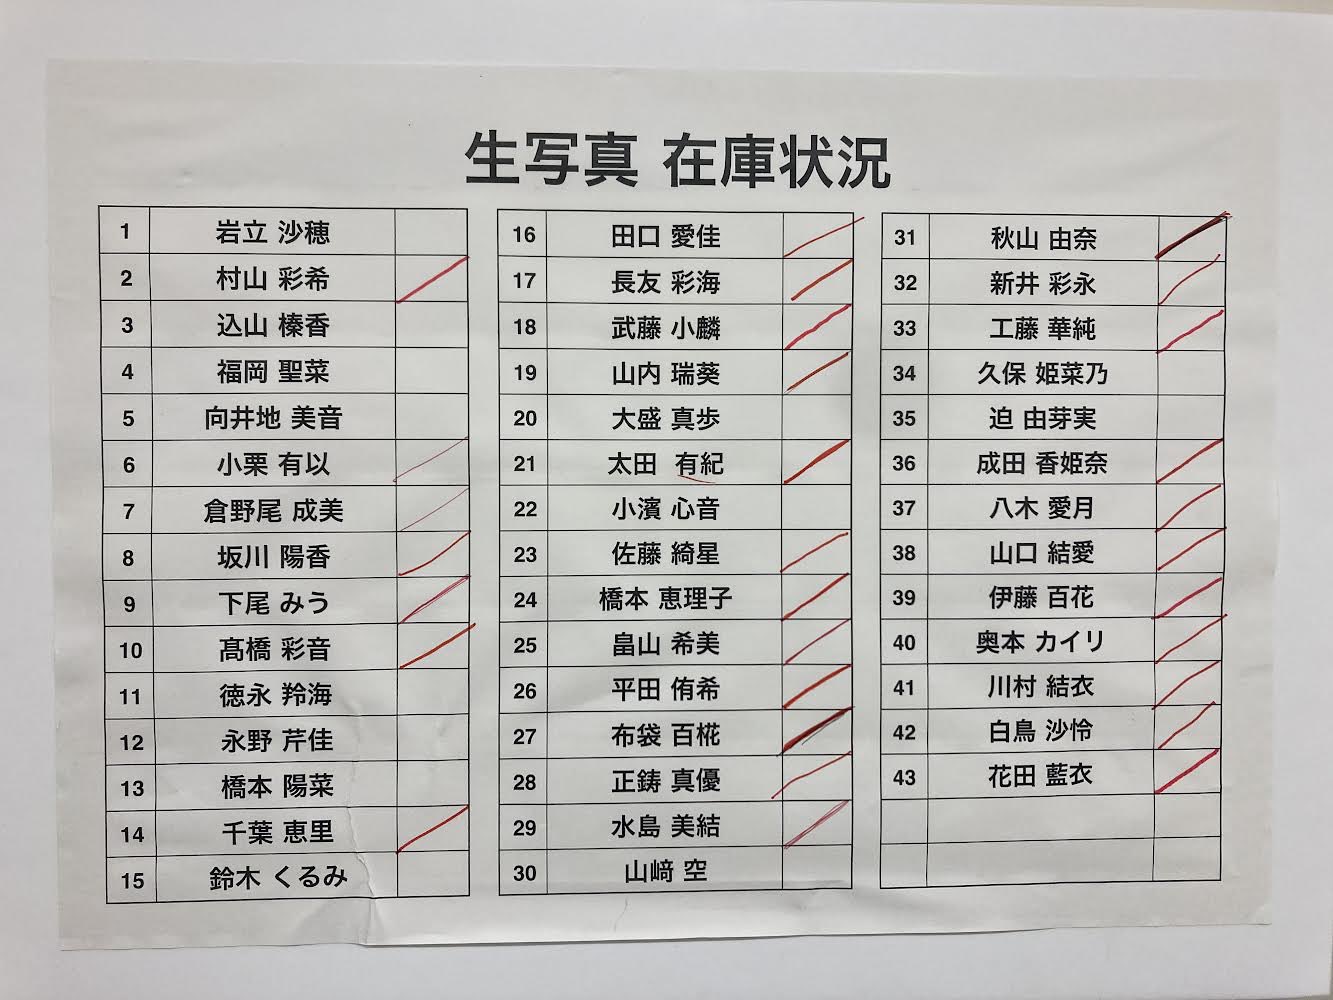 生写真 在庫状況
1 岩立 沙穂
2 村山 彩希
3 込山 榛香
4 福岡 聖菜
5 向井地 美音
6 小栗 有以
7 倉野尾 成美
8 坂川 陽香
9 下尾 みう
10 髙橋 彩音
11 徳永 羚海
12 永野 芹佳
13 橋本 陽菜
14 千葉 恵里
15 鈴木 くるみ
16 田口 愛佳
17 長友 彩海
18 武藤 小麟
19 山内 瑞葵
20 大盛 真歩
21 太田 有紀
22 小濱 心音
23 佐藤 綺星
24 橋本 恵理子
25 畠山 希美
26 平田 侑希
27 布袋 百椛
28 正鋳 真優
29 水島 美結
30 山﨑 空
31 秋山 由奈
32 新井 彩永
33 工藤 華純
34 久保 姫菜乃
35 迫 由芽実
36 成田 香姫奈
37 八木 愛月
38 山口 結愛
39 伊藤 百花
40 奥本 カイリ
41 川村 結衣
42 白鳥 沙怜
43 花田 藍衣